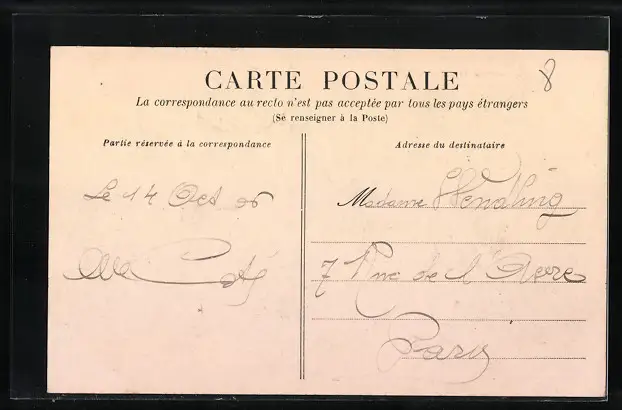 8
CARTE POSTALE
La correspondance au recto n'est pas acceptée par tous les pays étrangers
(Se renseigner à la Poste)
Partie réservée à la correspondance
Adresse du destinataire
Le 14 Oct 06
Madame Wendling
7 Rue de l'
Paris